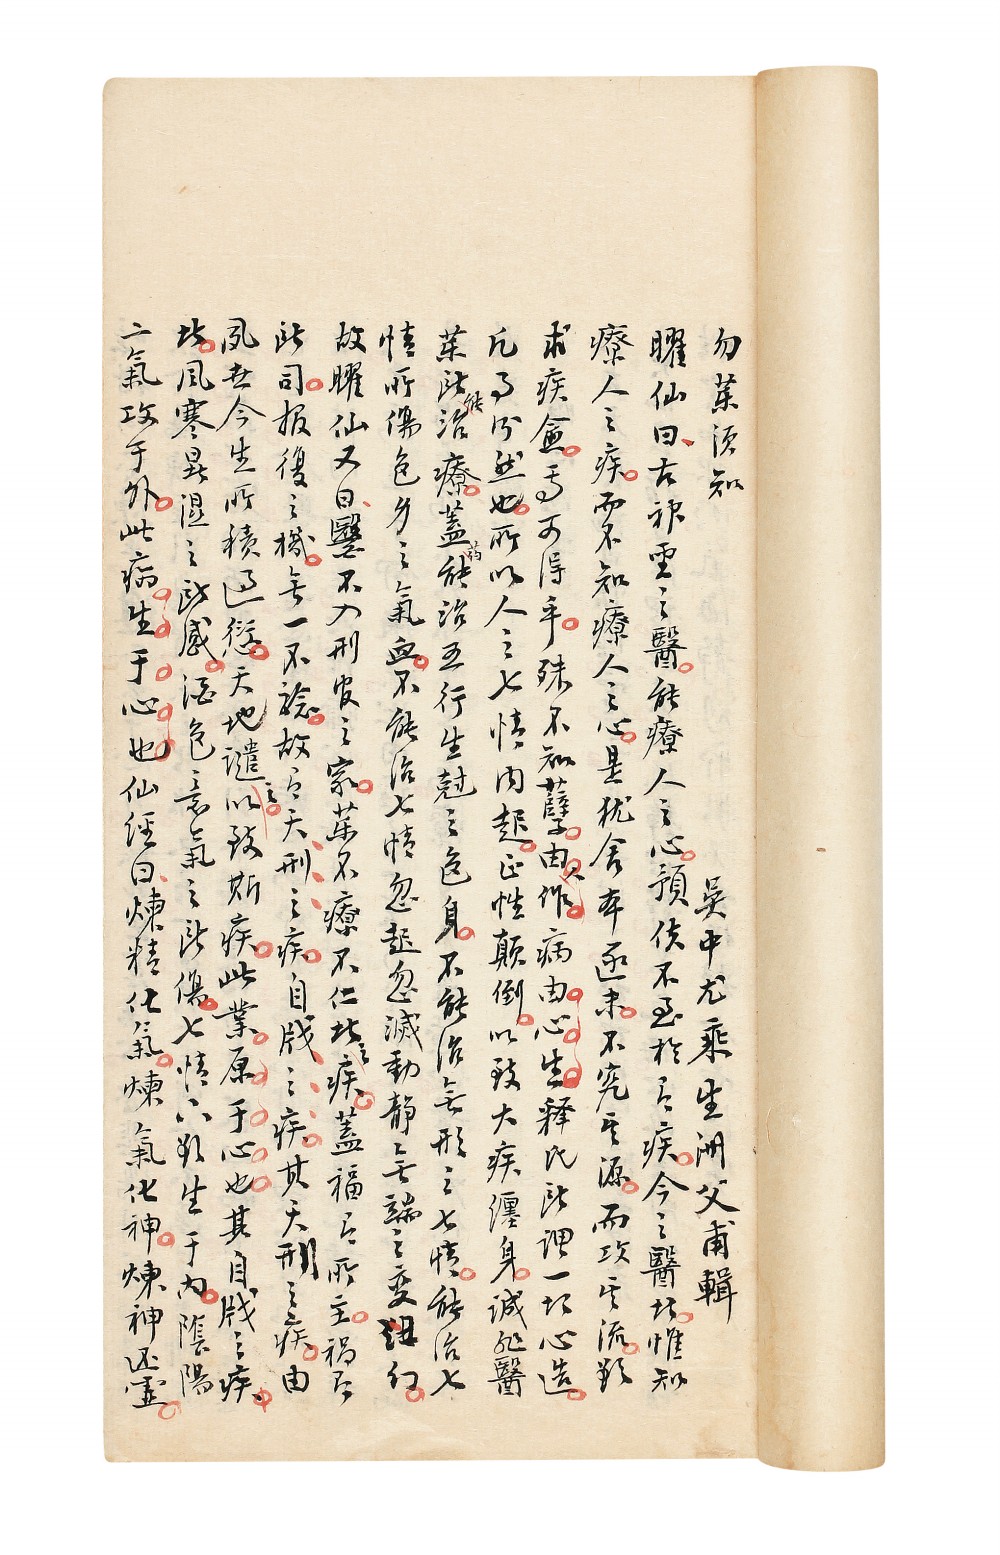 勿藥須知
吳中尤乘生洲父甫輯
曜仙曰古神聖之醫能療人之心預使不至於有疾今之醫者惟知
療人之疾而不知療人之心是猶舍本逐末不究其源而攻其流欲
求疾愈焉可得乎殊不知孽由人作病由心生釋氏所謂一切心造
凡事皆然也所以人之七情內起正性顛倒以致大疾纏身誠非醫
藥所能治療蓋藥能治五行生尅之色身不能治無形之七情能治七
情所傷色身之氣血不能治七情忽起忽滅動靜無端之變幻
故曜仙又曰醫不入刑官之家藥不療不仁者之疾蓋福有所主禍有
所司報復之機無一不驗故有天刑之疾自戕之疾其天刑之疾由
夙世今生所積過愆天地譴之以致斯疾此業原于心也其自戕之疾
者風寒暑濕之所感酒色意氣之所傷七情六欲生于內陰陽
二氣攻于外此病生于心也仙經曰煉精化氣煉氣化神煉神還虛